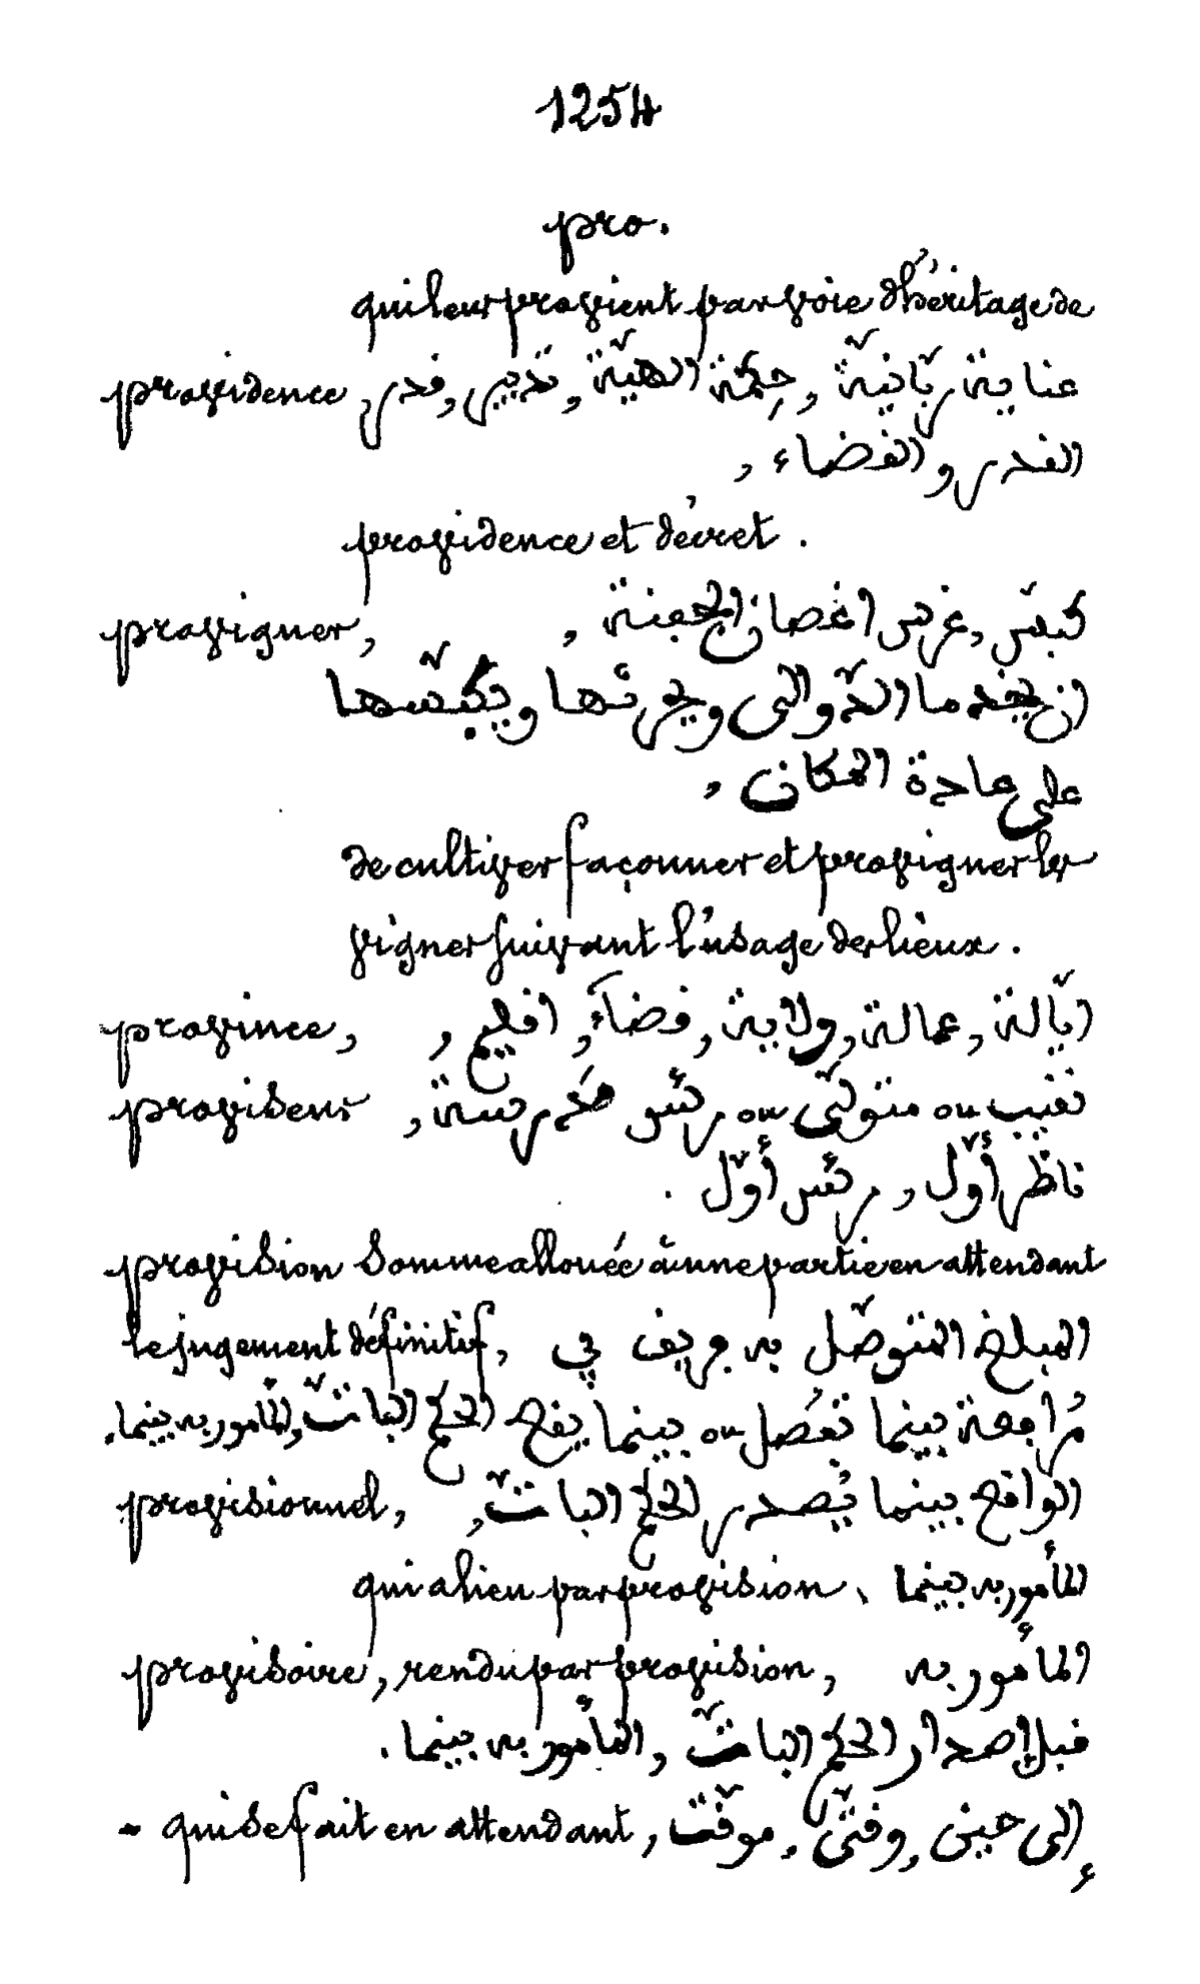 1254
pro.
qui leur provient par voie d'héritage de
providence, عناية ربّانيّة, حِكمة الهيّة, تدبير, قدر,
القدر والقضاء,
providence et décret.
provigner, كبّس, غرس اغصان الجفنة,
ان يخدما الدّوالي ويحرثها ويكبّسها
على عادة المكان,
de cultiver façonner et provigner les
vignes suivant l'usage des lieux.
province, ايّالة, عمالة, ولاية, قضآء, اقليم,
proviseur نقيب ou متولّى ou رئيس مدرسة,
ناظر أوّل, رئيس أوّل.
provision somme allouée à une partie en attendant
le jugement définitif, المبلغ المتوصّل به فريق في
مُرافعة بينما تفصل ou بينما يقع الحكم الباتّ, المأمور به بينما.
provisionnel, الواقع بينما يُصدر الحكم الباتّ,
qui a lieu par provision, المأمور به بينما
provisoire, rendu par provision, المأمور به
قبل إصدار الحكم الباتّ, المأمور به بينما.
- qui se fait en attendant, إلى حين, وقتّى, موقّت